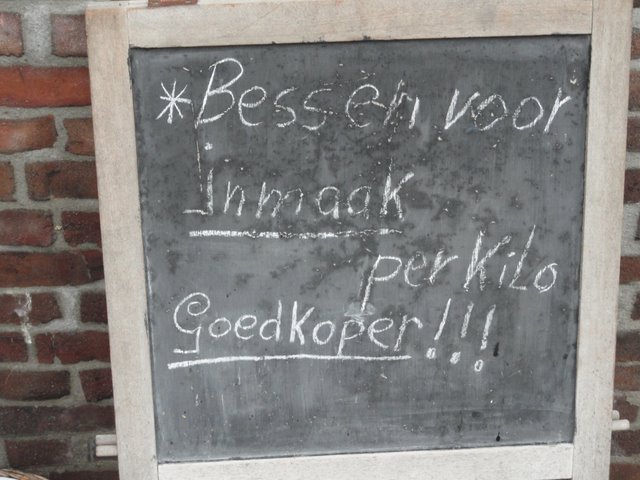 *Bessen voor
Inmaak
per Kilo
Goedkoper!!!